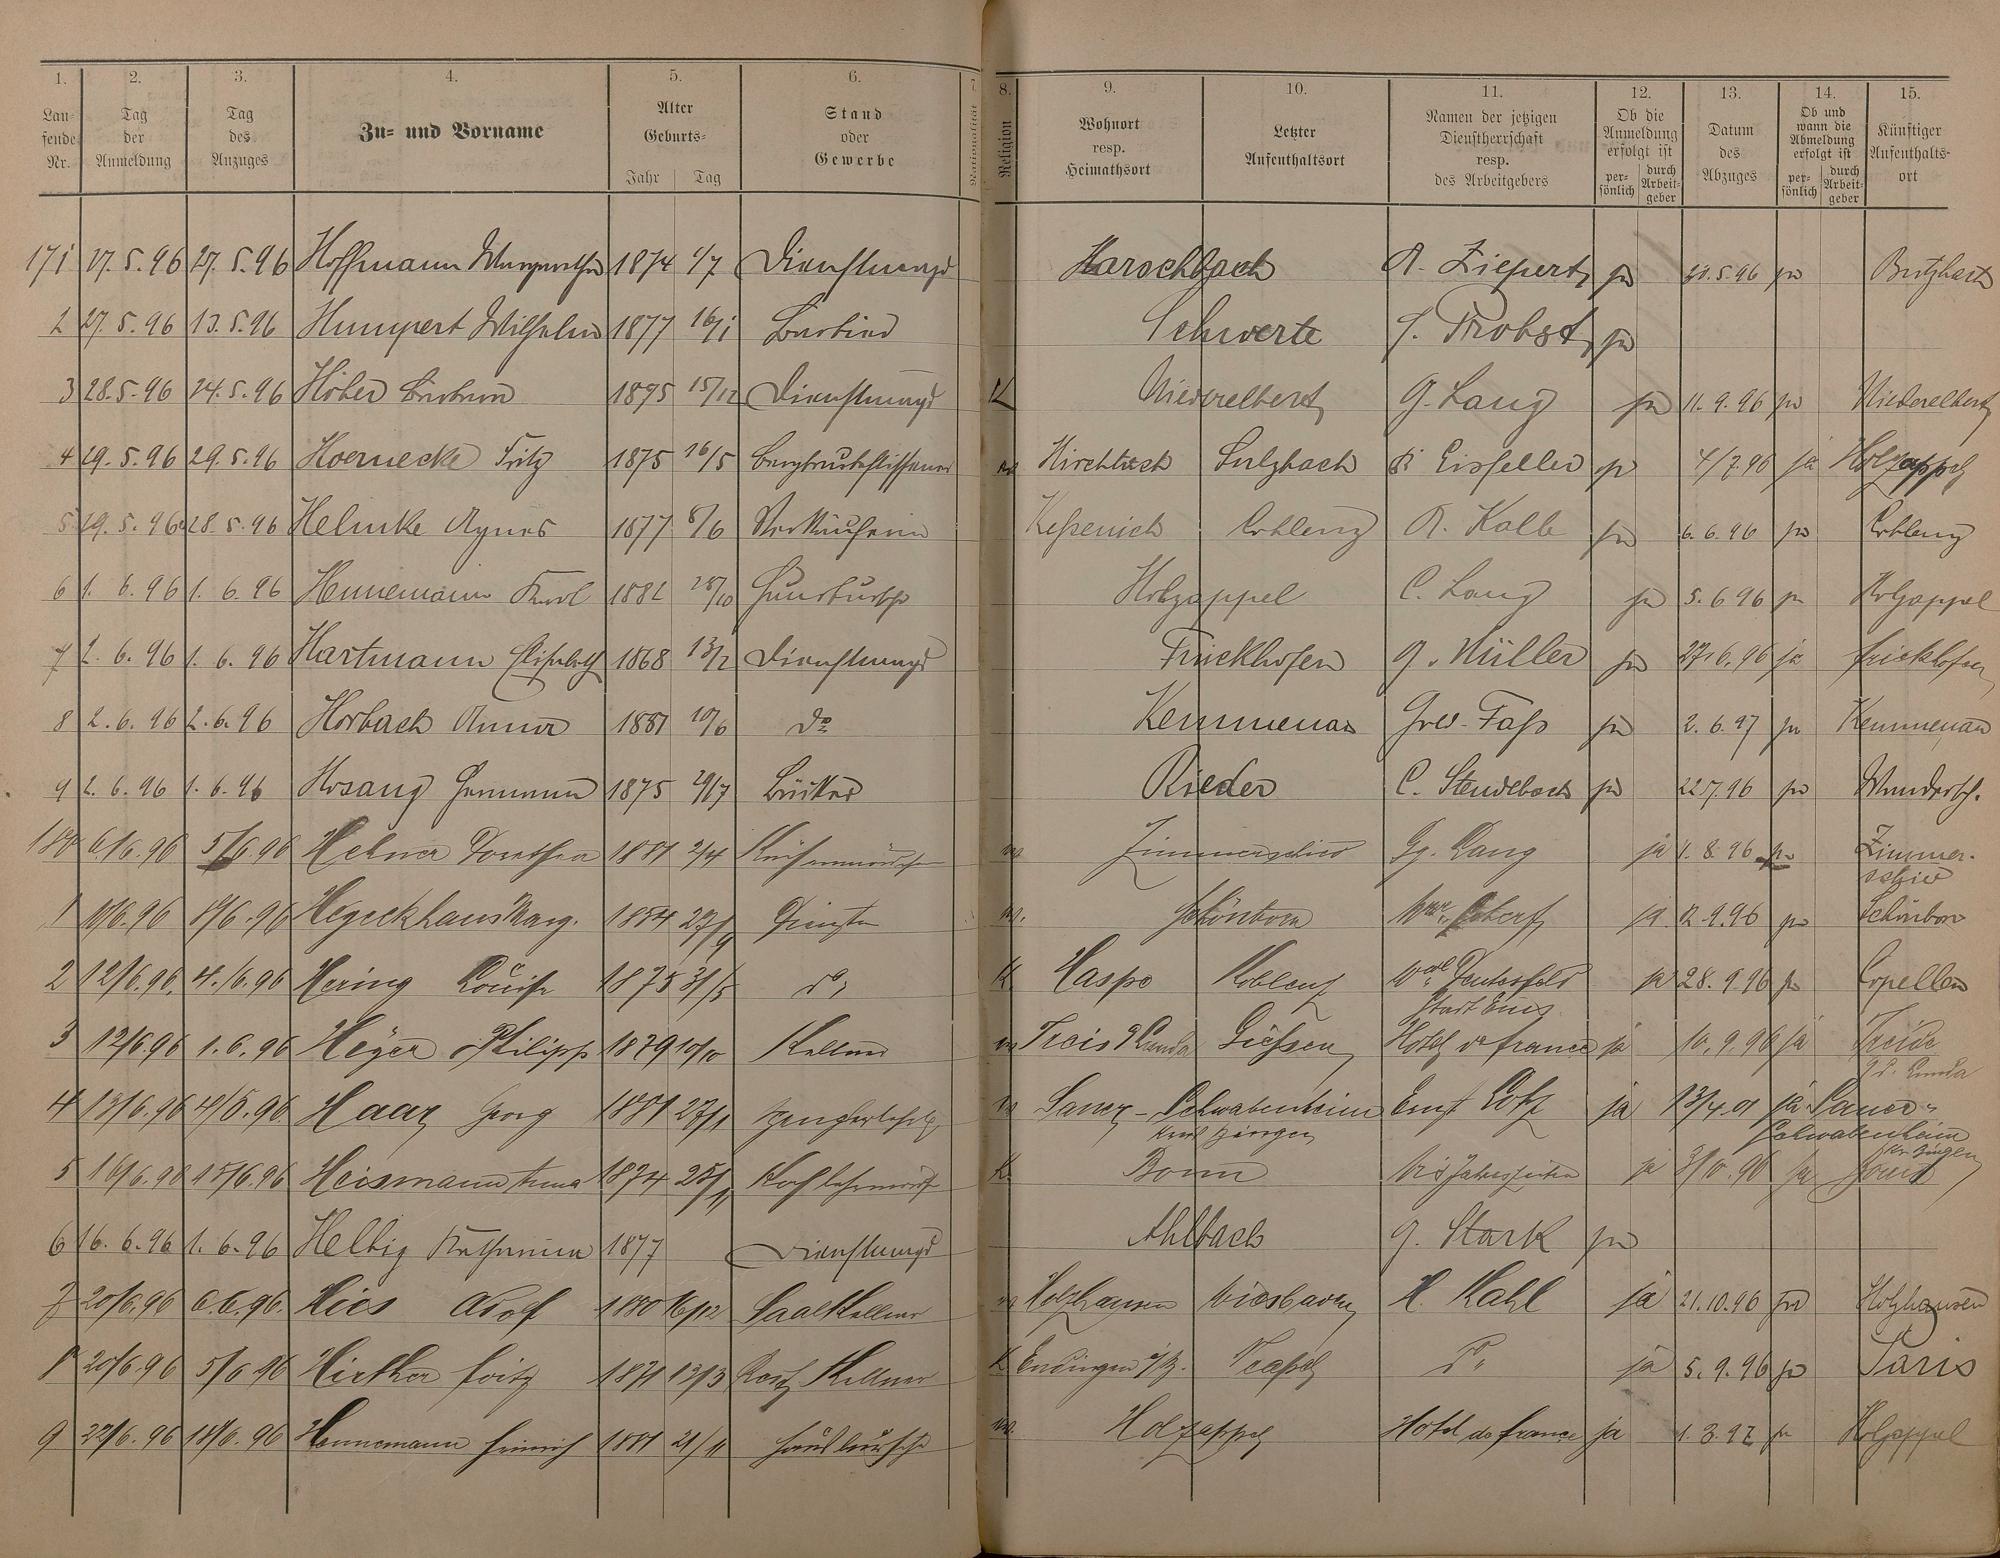 1. 2. 3. 4. 5. 6. 7. 8. 9. 10. 11. 12. 13. 14. 15.
Laufende Nr. Tag der Anmeldung Tag des Anzuges Zu- und Vorname Alter Geburts- Jahr Tag Stand oder Gewerbe Nationalität Religion Wohnort resp. Heimathsort Letzter Aufenthaltsort Namen der jetzigen Dienstherrschaft resp. des Arbeitgebers Ob die Anmeldung erfolgt ist persönlich durch Arbeitgeber Datum des Abzuges Ob und wann die Abmeldung erfolgt ist persönlich durch Arbeitgeber Künftiger Aufenthaltsort
171 27.5.96 27.5.96 Hoffmann Margaretha 1874 1/7 Dienstmagd Harschbach A. Ziepert ja 30.5.96 ja
2 27.5.96 13.5.96 Humpert Wilhelm 1877 16/1 Barbier Schwerte J. Probst ja
3 28.5.96 24.5.96 Höher Barbara 1895 15/12 Dienstmagd K Niederelbert G. Lang ja 11.9.96 ja Niederelbert
4 29.5.96 29.5.96 Hoernecke Fritz 1875 16/5 Sulzbach Eisfeller ja 4/7.96 ja Holzappel
5 29.5.96 28.5.96 Helmke Agnes 1877 8/6 Verkäuferin Keßenich Coblenz A. Kalb ja 6.6.96 ja Coblenz
6 1.6.96 1.6.96 Hennemann Karl 1882 28/10 Hausbursche Holzappel C. Lang ja 5.6.96 ja Holzappel
7 2.6.96 1.6.96 Hartmann Elisabeth 1868 13/2 Dienstmagd Frickhofen G. Müller ja 27.6.96 ja Frickhofen
8 2.6.96 2.6.96 Horbach Anna 1881 10/6 do Kemmenau Faß ja 2.6.97 ja Kemmenau
9 2.6.96 1.6.96 Hosang Hermann 1875 29/7 Bäcker Rieder C. Stendebach ja 22.7.96 ja Wandersch.
180 6/6.96 5/6.96 Hehner Dorothea 1881 2/4 Küchenmädchen Zimmerschied Gg. Lang ja 1.8.96 ja Zimmer-
schied
1 8/6.96 Marg. 1854 27/9 Schönborn ja 12.9.96 ja Schönborn
2 12/6.96. 4./6.96 Hering Louise 1875 31/5 do K. Haspe Koblenz ja 28.9.96 ja Capellen
Stadt Ems
3 12/6.96 1.6.96 Heyer Philipp 1879 10/10 Kellner Treis Gießen Hotel de france ja 10.9.96 ja
4 13/6.96 4/5.96 Haar Georg 1881 27/11 Sauer-Schwabenheim ja 13/4.01 ja Sauer-
Schwabenheim
Kr. Bingen
5 16/6.96 15/6.96 Heismann Anna 1874 25/11 K. Bonn Vier Jahreszeiten ja 3/10.96 ja Bonn
6 16.6.96 1.6.96 Helbig Katharina 1877 Dienstmagd Ahlbach G. Stark ja
7 20/6.96 6.6.96. Hies Adolf 1880 16/12 Saalkellner Holzhausen Wiesbaden H. Kahl ja 21.10.96 ja Holzhausen
8 20/6.96 5/6.96 Fritz 1871 13/3 Kellner K Endingen Neapel do ja 5.9.96 ja Paris
9 22/6.96 18/6.96 Hennemann Heinrich 1881 21/11 Hausbursche Holzappel Hotel de france ja 1.3.97 ja Holzappel